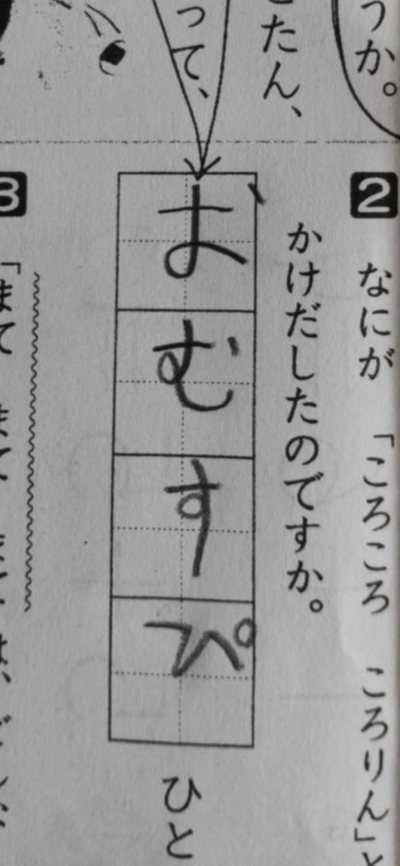 うか。
たん、
って、
2 なにが 「ころころ ころりん」と
かけだしたのですか。
おむすぴ ひと
3 「まて まて